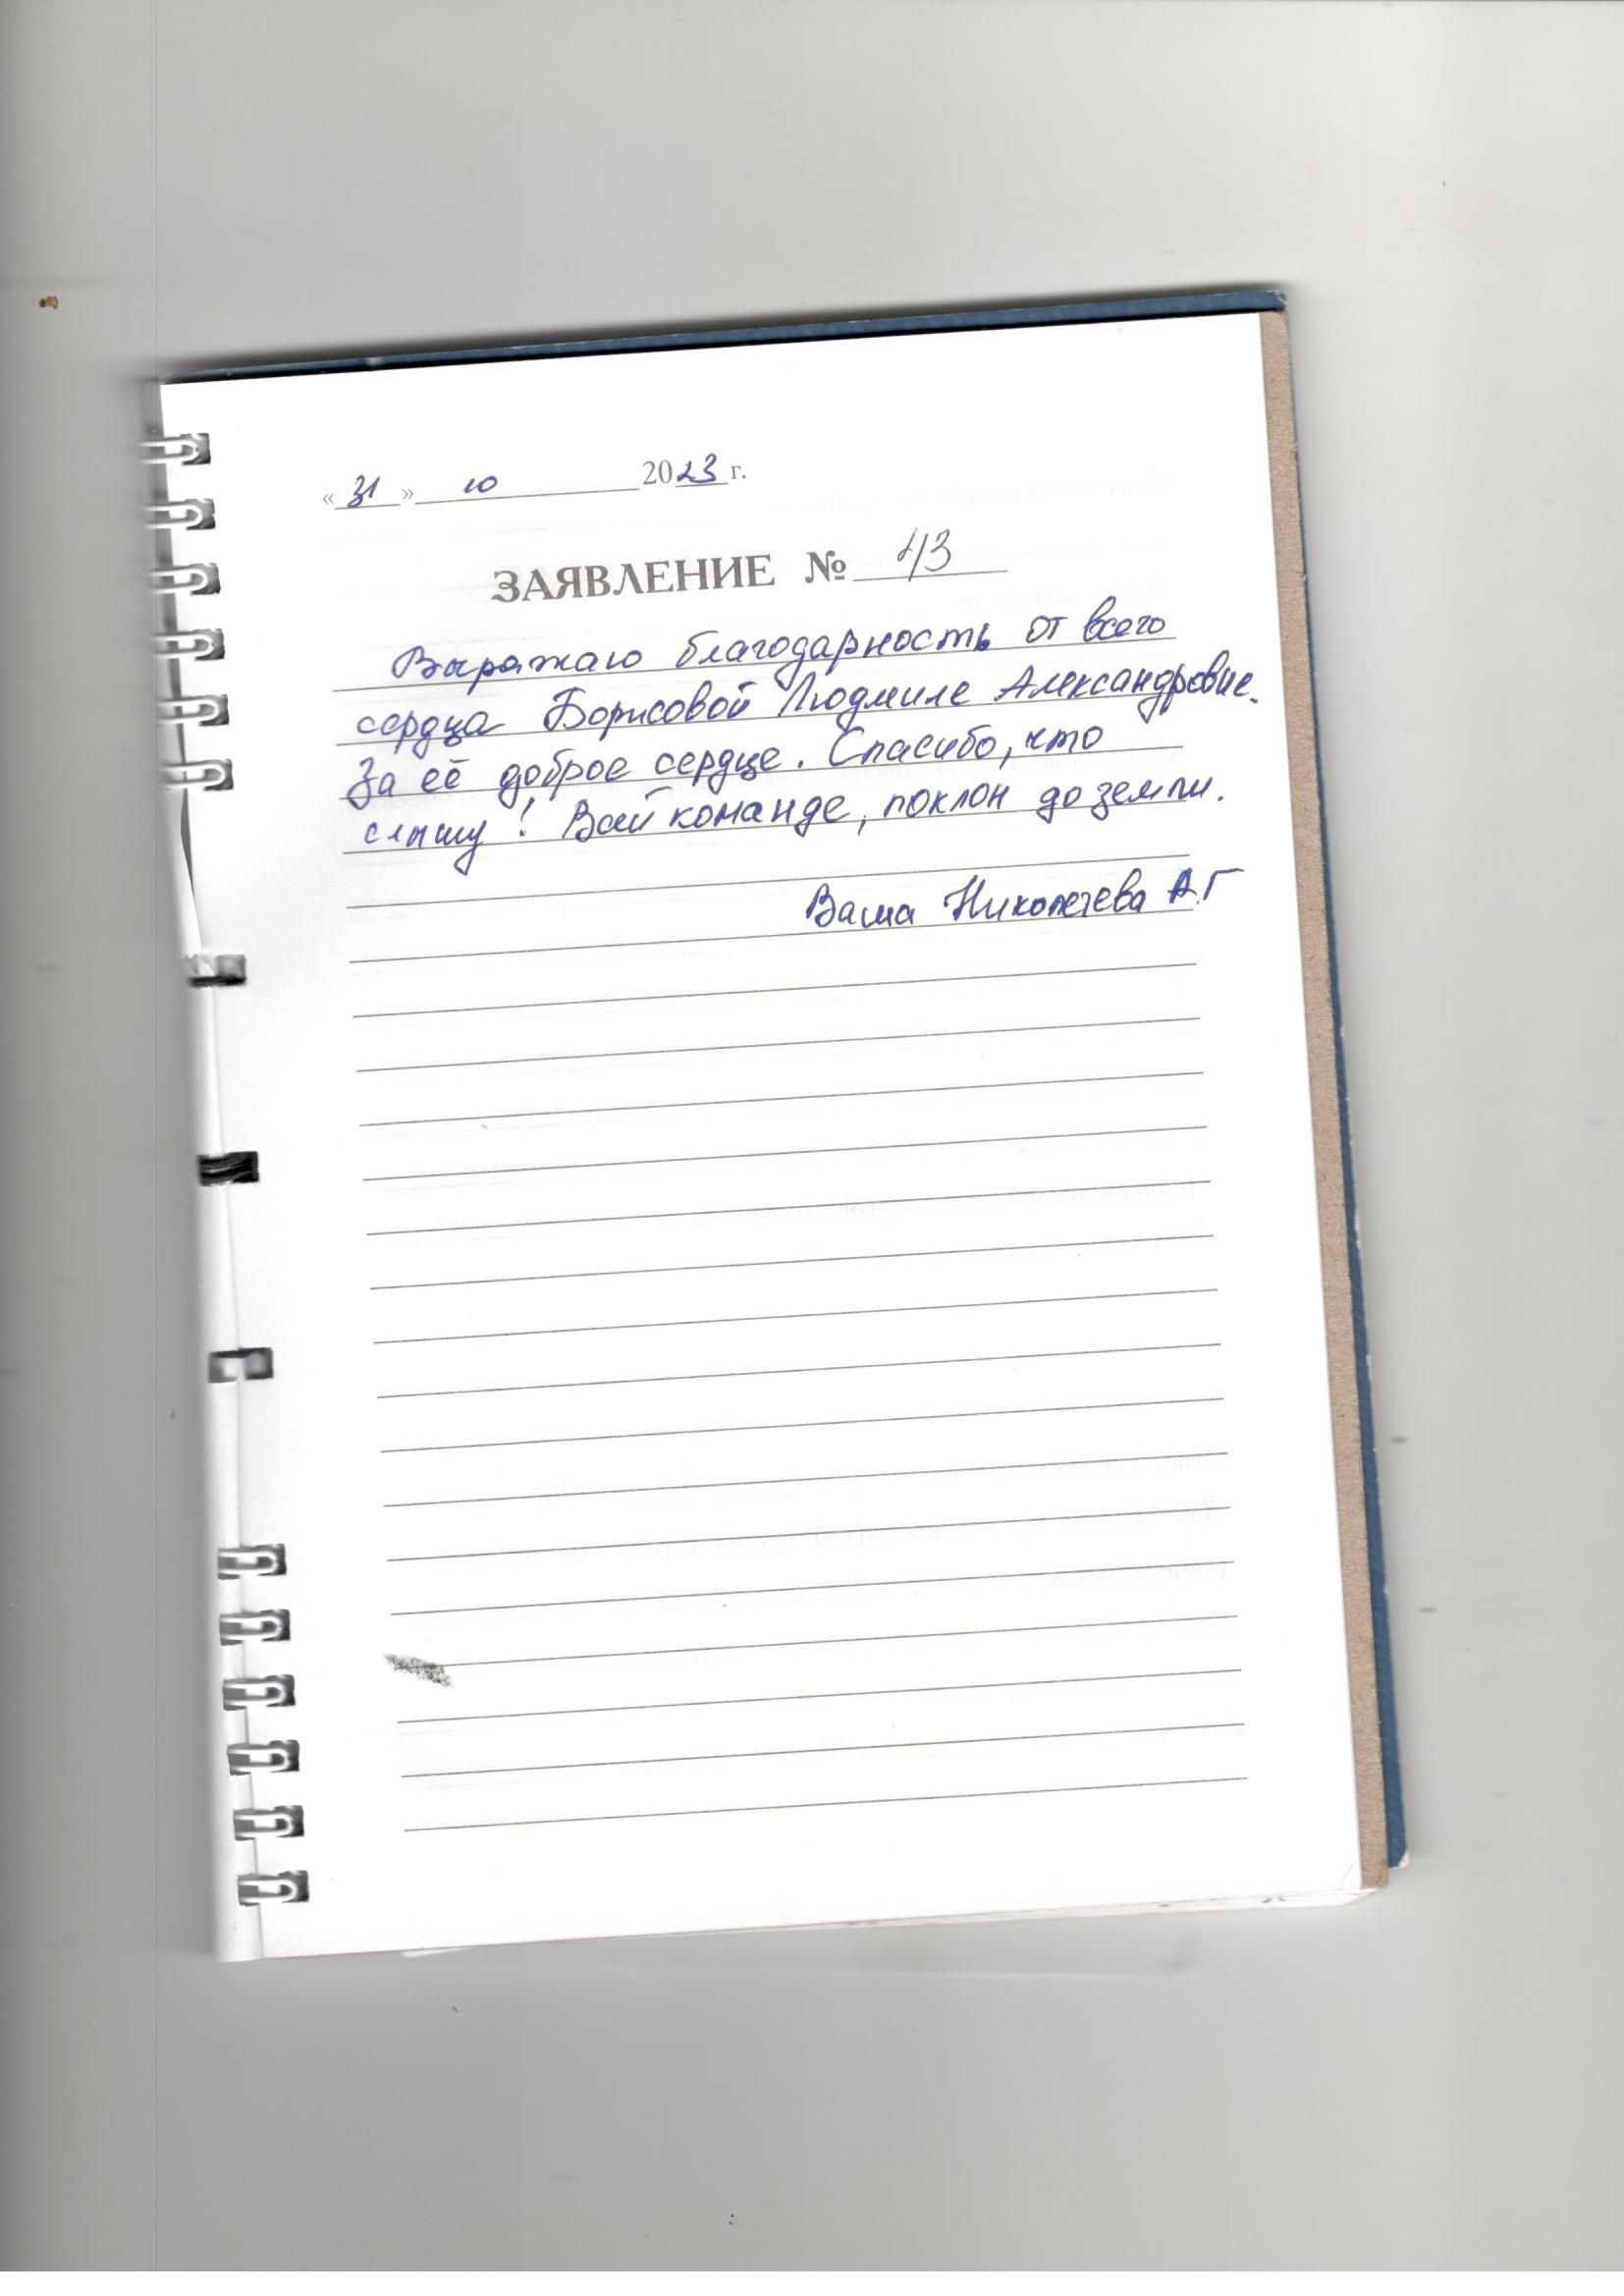 «31» 10 2023 г.
ЗАЯВЛЕНИЕ № 43
Выражаю благодарность от всего
сердца Борисовой Людмиле Александровне.
За её доброе сердце. Спасибо, что
слышу! Всей команде, поклон до земли.
Ваша А.Г